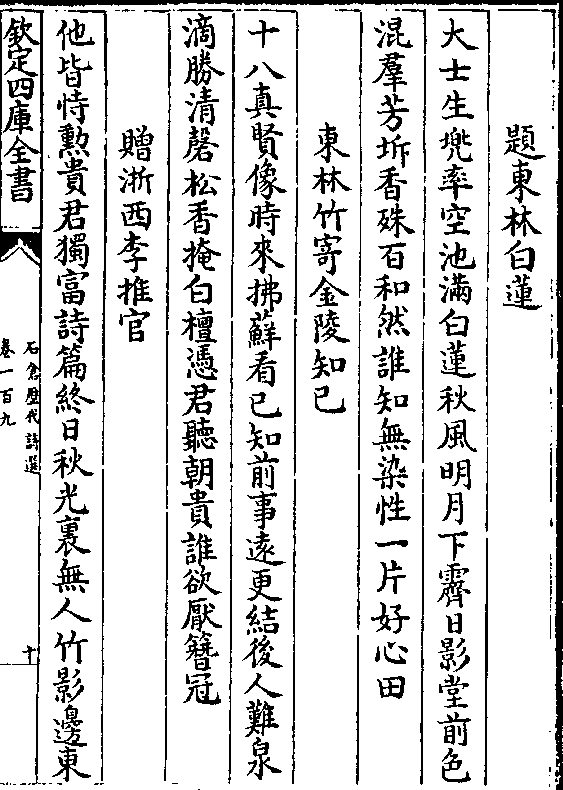 題東林白蓮
大士生兠率空池滿白蓮秋風明月下霽日影堂前色
混羣芳坼香殊百和然誰知無染性一片好心田
東林竹寄金陵知己
十八真賢像時來拂蘚看已知前事遠更結後人難泉
滴勝清磬松香掩白檀憑君聽朝貴誰欲厭簪冠
贈浙西李推官
他皆恃勲貴君獨富詩篇終日秋光裏無人竹影邊東
欽定四庫全書
石倉歷代詩選
卷一百九
十